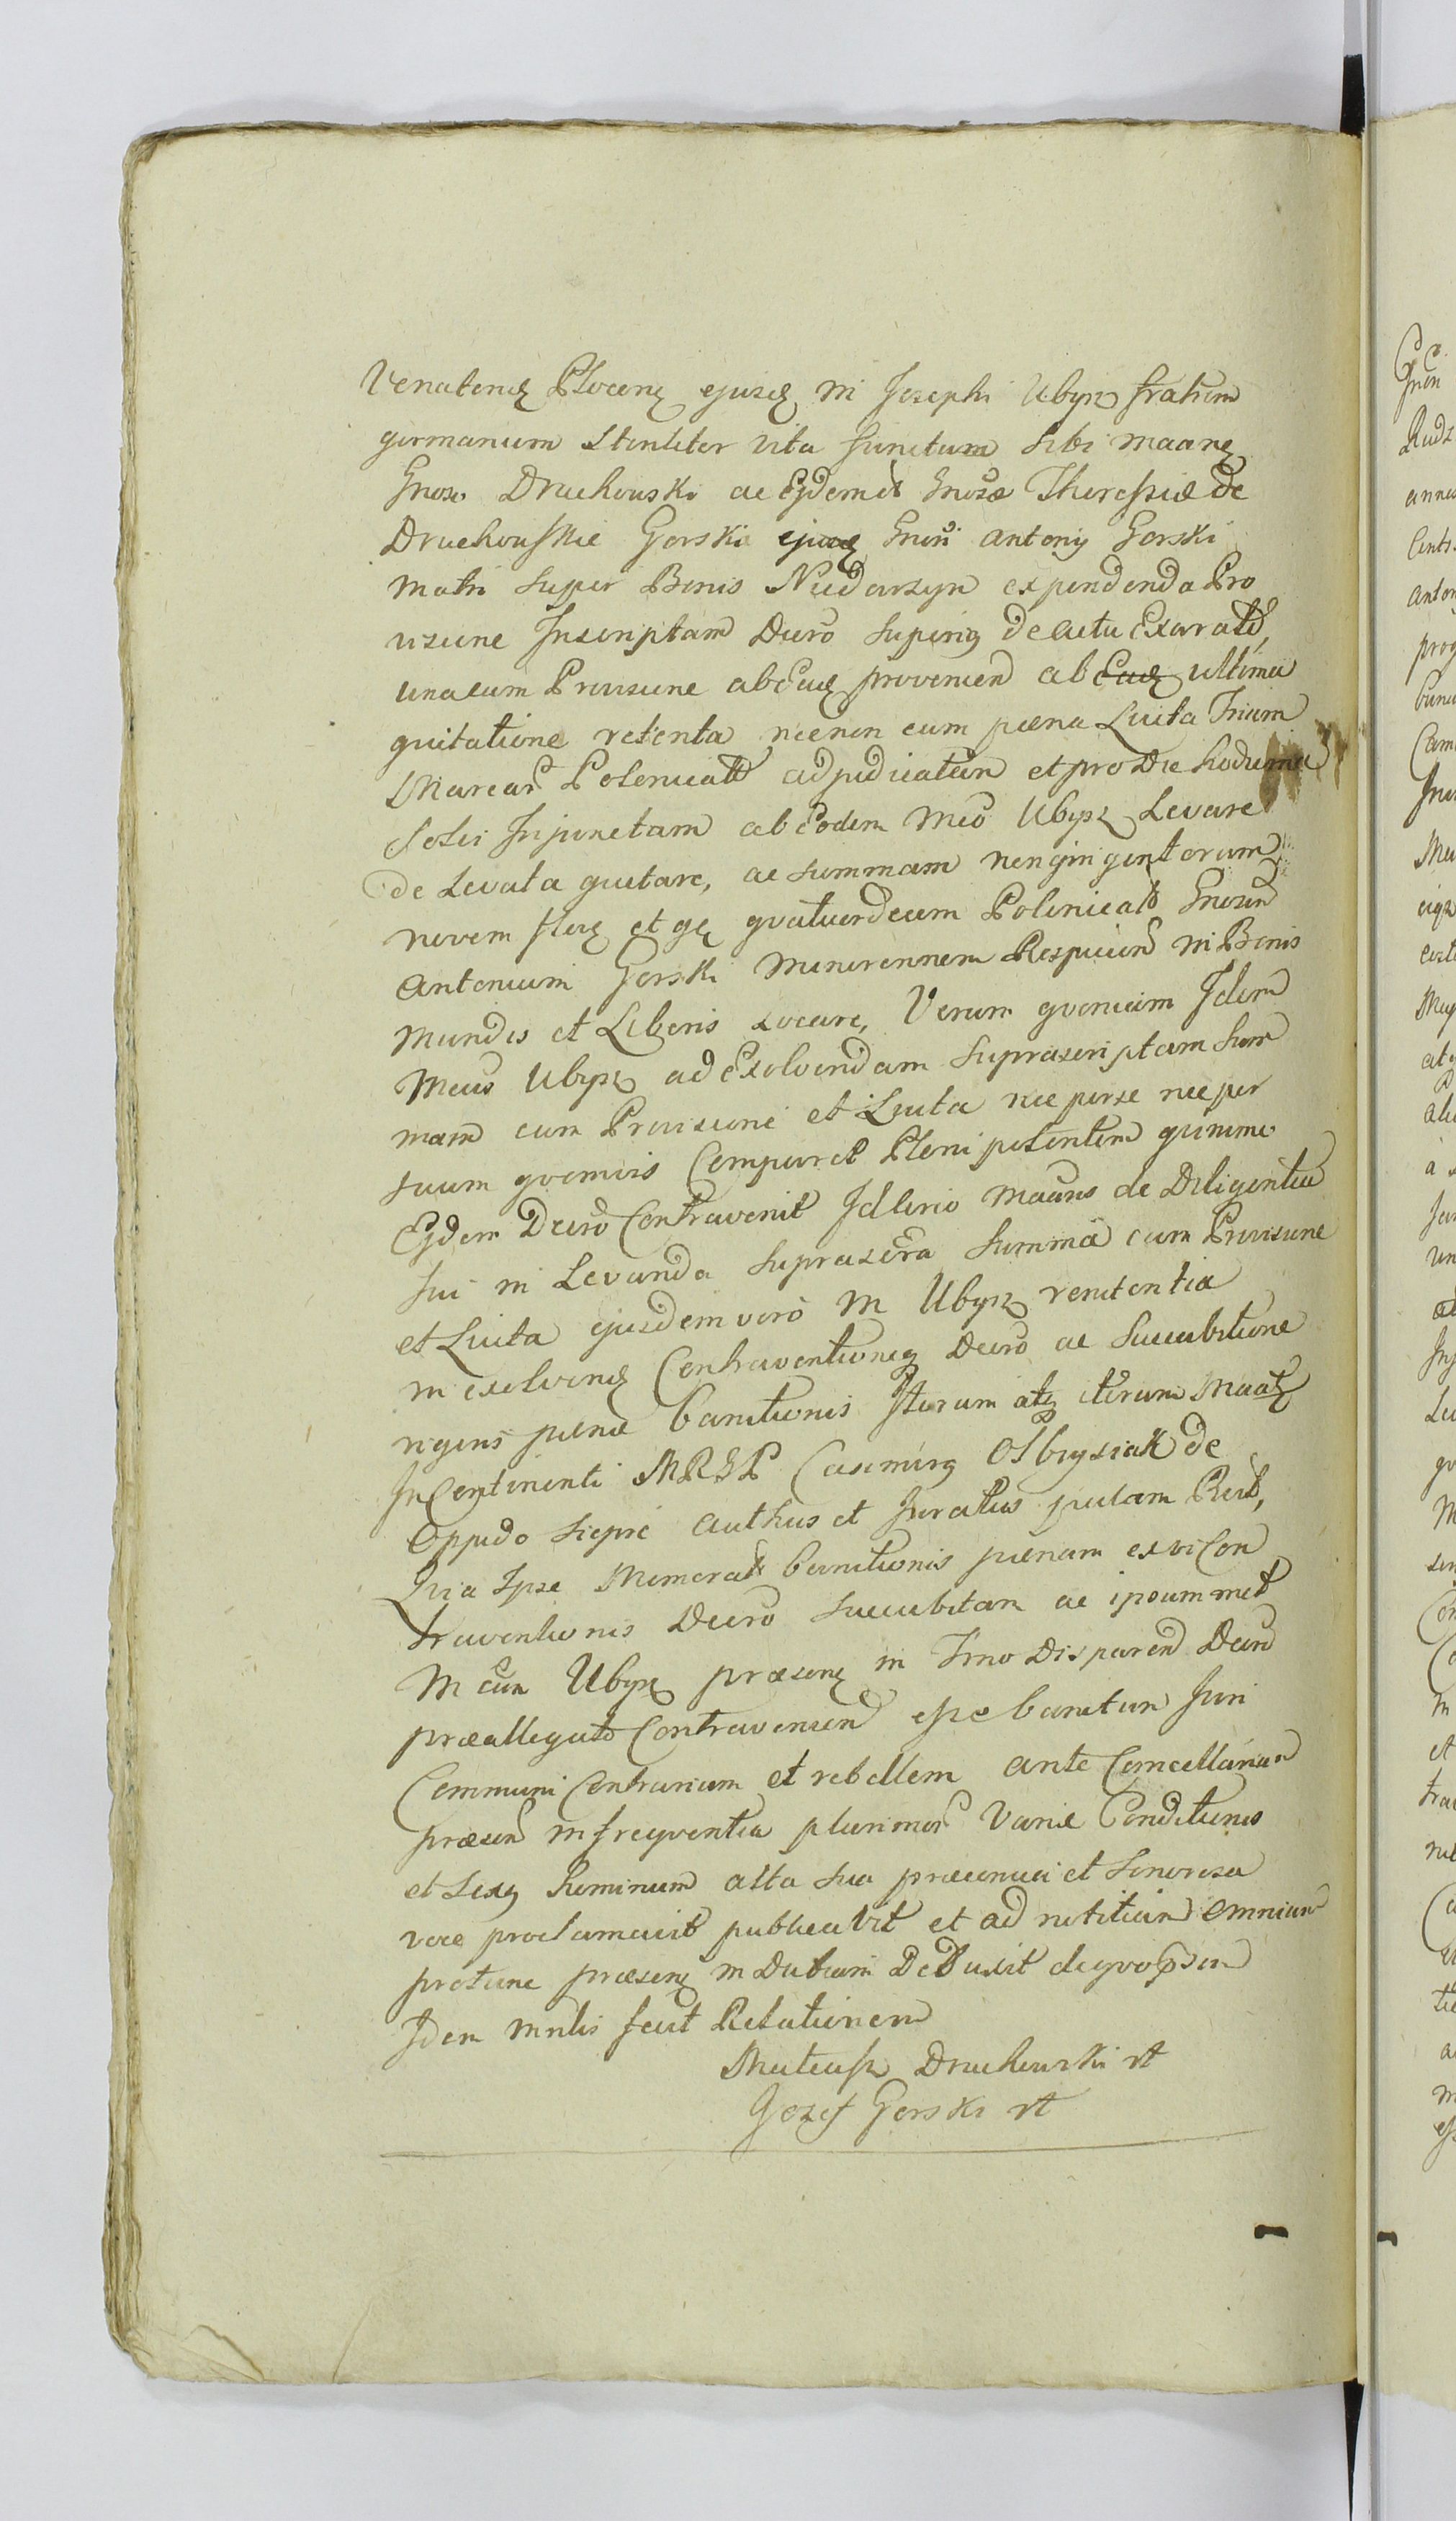 Venatoris Plocens ejusd M Josephi Ubysz fratrem
germanum sterliter vita functum sibi maane
Gnoso Druchowski ac Ejdemet Gnosae Theressiae de
Druchowskie Gorski ejusd Gnosi Antonij Gorski
Matri super Bonis Niedarzyn expendenda Pro
visione Inscriptam Decro superig de actu Exarato,
unacum Provisione ab Ead provenien ab Ead ultima
quitatione retenta necnon cum paena Luita Trium
Marcar Polonicalt adjudicatam et pro Die hodierna
Solvi Injunctam ab Eodem Mco Ubysz Levare
de Levata quitare, ac summam nongingentorum
novem flor et gr gvatuordecem Polonicalt Gnosum
Antonium Gorski Minorennem Respicien in Bonis
Mundis et Liberis Locare, Verum gvoniam Idem
Mcus Ubysz ad Exolvendam suprascriptam sum
mam cum Provisione et Luita nec per se nec per
suum gvemvis Comparet Plenipotentem quinimo
Ejdem Decro Contravenit Idcirco Maans de Diligentia
sui in Levanda suprascra summa cum Provisione
et Luita ejusdem vero M Ubysz renitentia
in exolvend Contraventioneg Decro ac succubitione
rigens paenae banitionis Iterum atg iterum Maatg
In Continenti MRGP Casimirg Olbrysiak de
Oppido Siepie Authus et Juratus palam Reit,
Qvia Ipse Memorat banitionis paenam ex vi Con
traventionis Decro succubitam ac ipsummet
M cum Ubysz praesens in Tmo Disparen Decro
praeallegato Contravenien esse banitum Juri
Communi Contrarium et rebellem ante Cancellariam
praesen in freqventia plurimor Variae Conditionis
et Sexg hominum alta sua praeconica et sonorosa
voce proclamavit publicavit et ad notitiam omnium
protunc praesens in Dubiam Deduxit de gvo
Idem Mnlis fecit Relationem
Mateusz Druchowski rt
Jozef Gorski rt